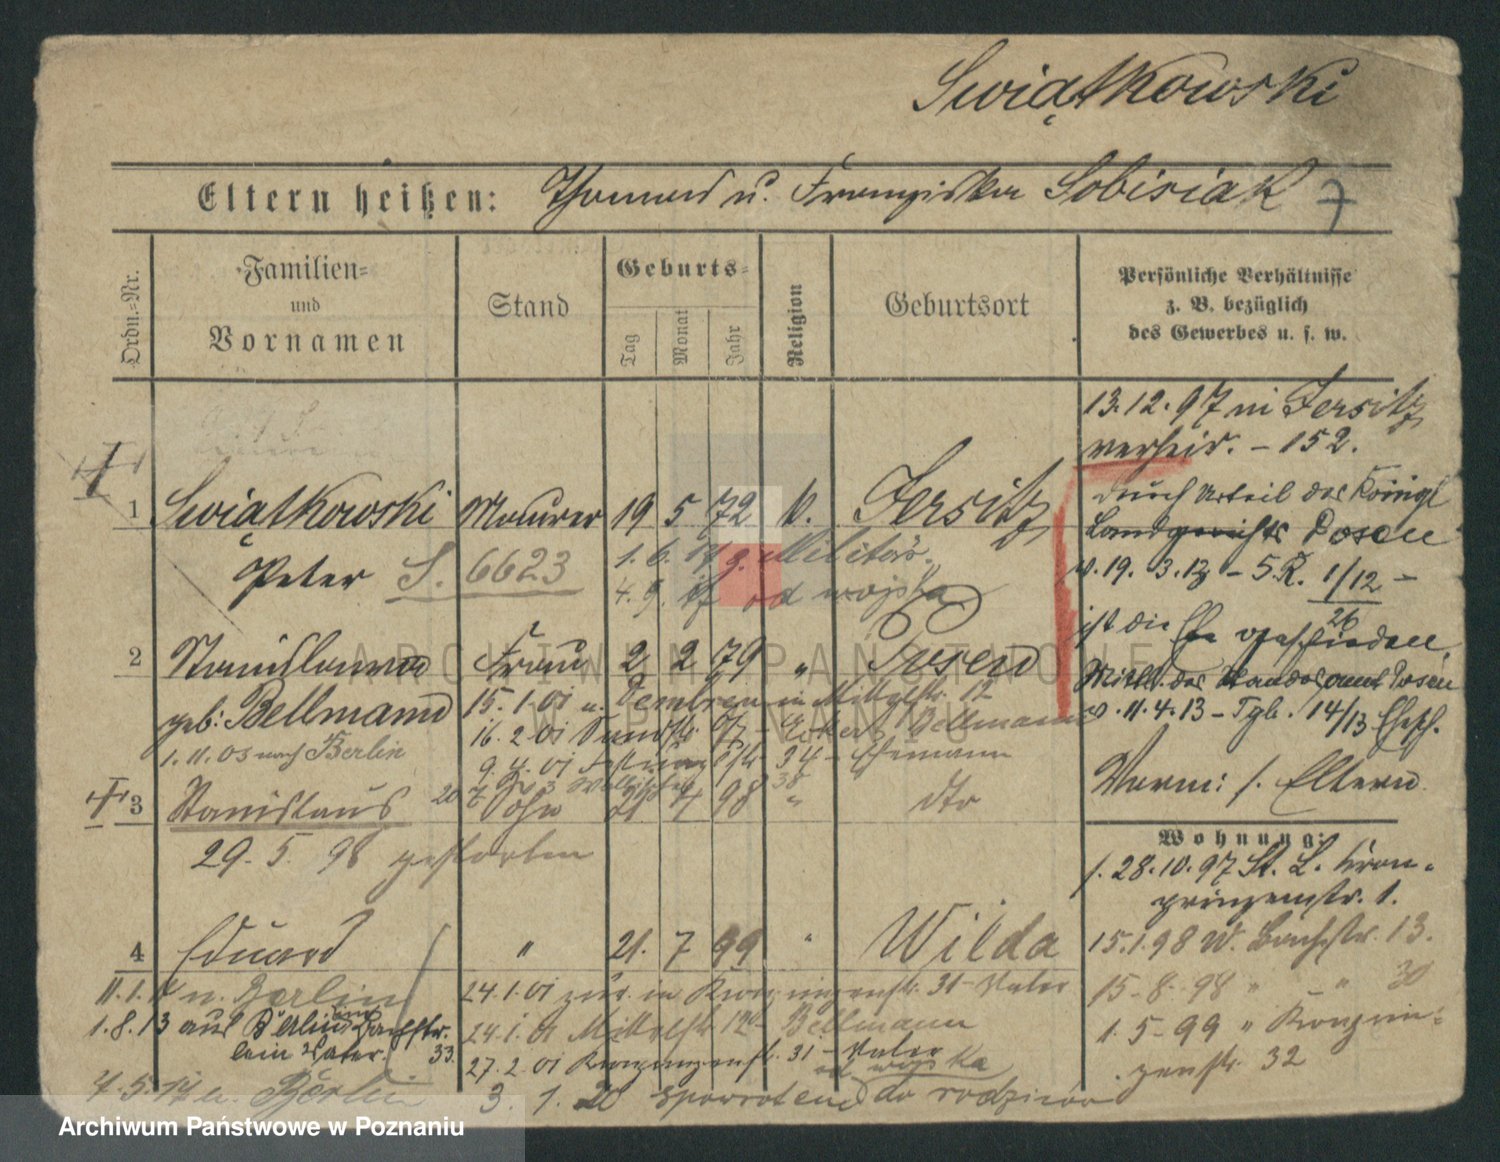 Swiątkowski
Eltern heißen: Thomas u. Franziska Sobisiak 7
Ordn.=Nr.
Familien= und Vornamen
Stand
Geburts=
Tag
Monat
Jahr
Religion
Geburtsort
Persönliche Verhältnisse
z. B. bezüglich
des Gewerbes u. s. w.
13.12.97 in Jersitz
verheir. – 152.
1 Swiątkowski Maurer 19 5 72 k. Jersitz
Peter S. 6623 1.6.17 z. Militär
4.9. od wojska
durch Urteil des Königl
Landgerichts Posen
v. 19. 3. 12 – 5 R. 1/12 –
26
ist die Ehe geschieden.
Mittl. des Standesamt Posen
v. 11.4.13 – Tgb. 14/13 Ehesch.
2 Stanislawa Frau 2 2 79 " Posen
geb: Bellmann 15.1.01 u. in Mittelstr. 12
1.11.03 nach Berlin 16.2.01 Bellmann
9.4.01 34 – Ehemann
38
Verm: s. Eltern
3 Stanislaus 20 Sohn 21 4 98 " dto
29. 5. 98 gestorben
Wohnung:
s. 28.10.97 St. L. Kron-
prinzenstr. 1.
4 Eduard " 21. 7 99 " Wilda
15.1.98 W. Bachstr. 13.
15-8-98 " – " 30
1.5-99 " Kronprin-
zenstr. 32
n. Berlin 24.1.01 zur. in Kronprinzenstr. 31 – Vater
1.8.13 aus Berlin Bachstr. 24.1.01 Mittelstr. Bellmann
33. 27.2.01 Kronprinzenstr. 31 – Vater
od wojska
4.5.14 n. Berlin 3. 1. 20 spowrotem do rodziców
ARCHIWUM PAŃSTWOWE
W POZNANIU
Archiwum Państwowe w Poznaniu